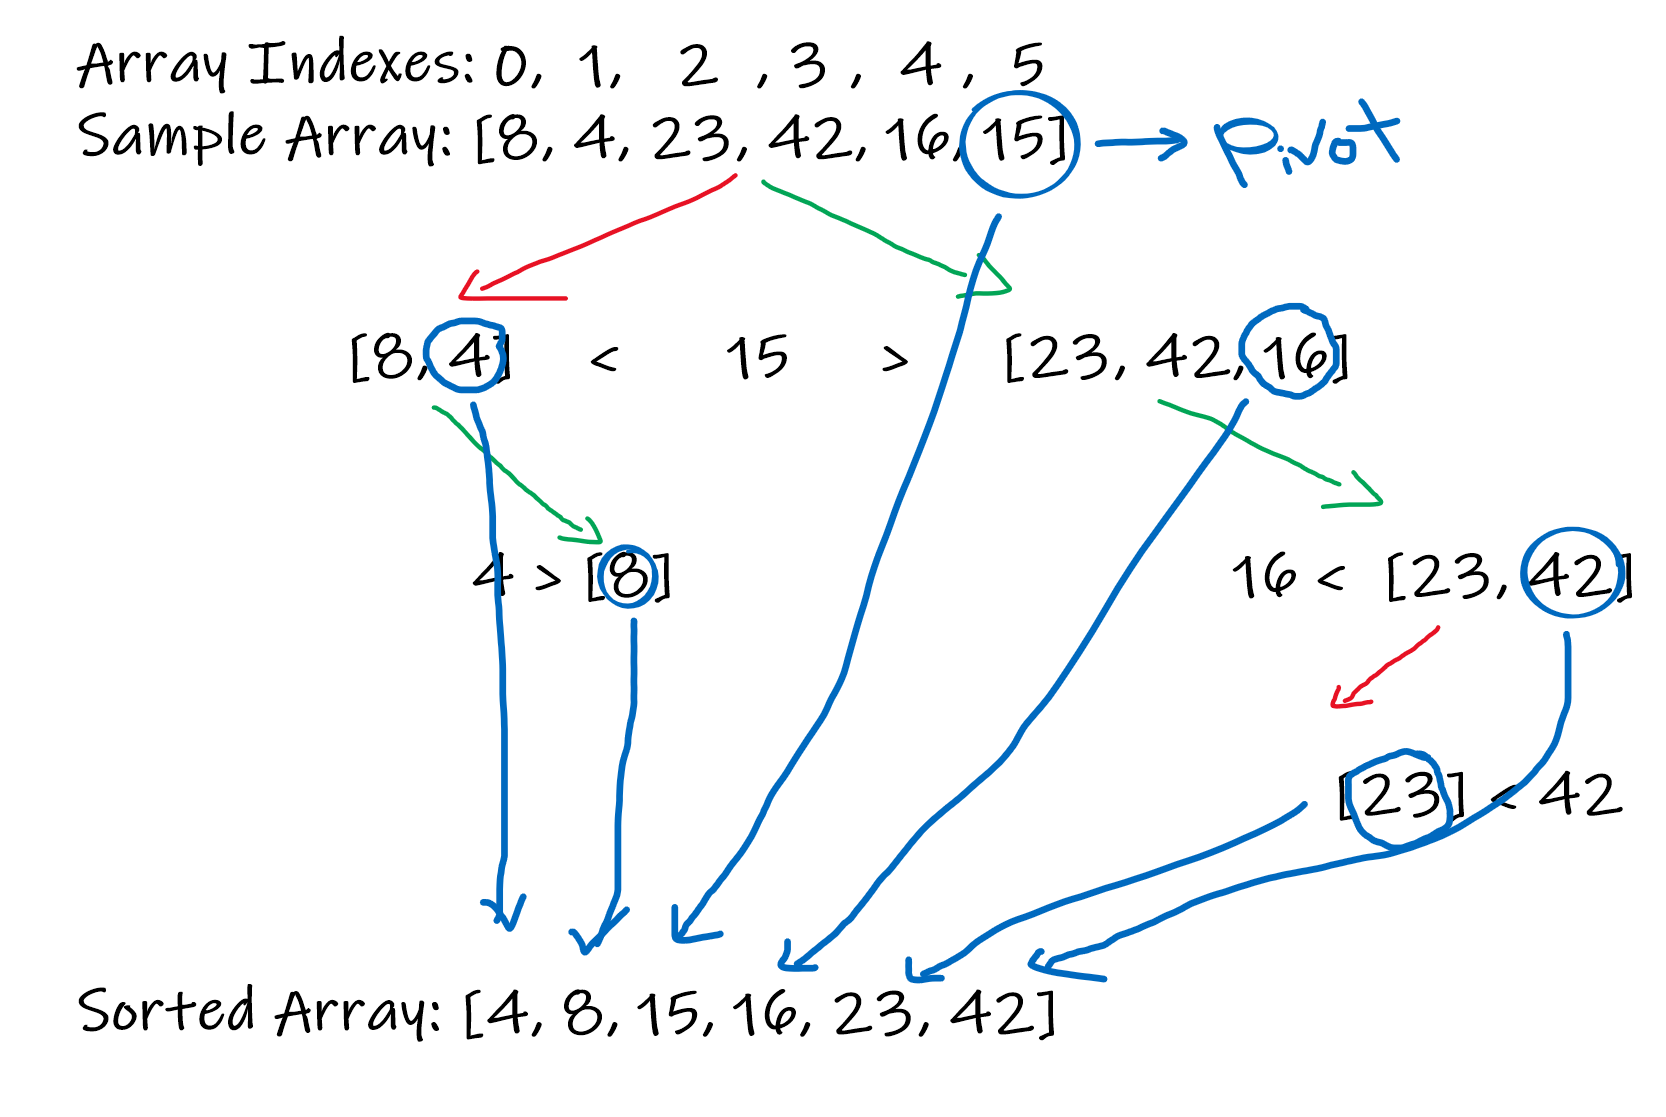 Array Indexes: 0, 1, 2 , 3 , 4 , 5
Sample Array: [8, 4, 23, 42, 16, 15] Pivot
[8, 4] < 15 > [23, 42, 16]
4 > [8] 16 < [23, 42]
[23] < 42
Sorted Array: [4, 8, 15, 16, 23, 42]